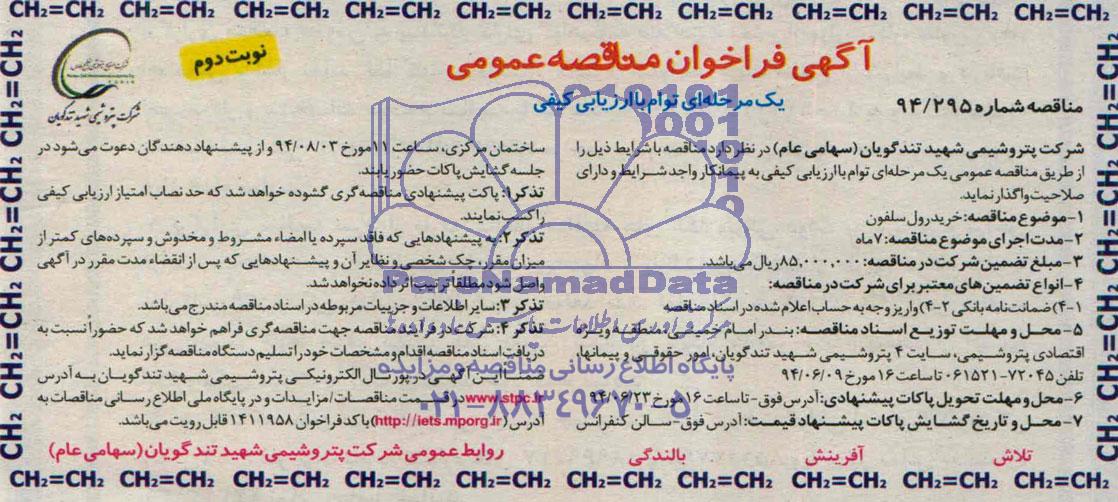 CH₂=CH₂ CH₂=CH₂ CH₂=CH₂ CH₂=CH₂ CH₂=CH₂ CH₂=CH₂ CH₂=CH₂ CH₂=CH₂ CH₂=CH₂ CH₂=CH₂
آگهی فراخوان مناقصه عمومی
نوبت دوم
یک مرحله‌ای توام با ارزیابی کیفی
مناقصه شماره ۹۴/۲۹۵
شرکت پتروشیمی شهید تندگویان
شرکت پتروشیمی شهید تندگویان (سهامی عام) در نظر دارد مناقصه با شرایط ذیل را
از طریق مناقصه عمومی یک مرحله‌ای توام با ارزیابی کیفی به پیمانکار واجد شرایط و دارای
صلاحیت واگذار نماید.
۱-موضوع مناقصه: خرید رول سلفون
۲-مدت اجرای موضوع مناقصه: ۷ ماه
۳-مبلغ تضمین شرکت در مناقصه: ۸۵,۰۰۰,۰۰۰ ریال می‌باشد.
۴-انواع تضمین‌های معتبر برای شرکت در مناقصه:
۴-۱) ضمانت‌نامه بانکی ۴-۲) واریز وجه به حساب اعلام شده در اسناد مناقصه
۵- محل و مهلت توزیع اسناد مناقصه: بندر امام خمینی، منطقه ویژه
اقتصادی پتروشیمی، سایت ۴ پتروشیمی شهید تندگویان، امور حقوقی و پیمانها،
تلفن ۷۲۰۴۵-۰۶۱۵۲۱ تا ساعت ۱۶ مورخ ۹۴/۰۶/۰۹
۶-محل و مهلت تحویل پاکات پیشنهادی: آدرس فوق- تا ساعت ۱۶ مورخ ۹۴/۰۶/۲۳
۷- محل و تاریخ گشایش پاکات پیشنهاد قیمت: آدرس فوق-سالن کنفرانس
ساختمان مرکزی، ساعت ۱۱ مورخ ۹۴/۰۸/۰۳ و از پیشنهاد دهندگان دعوت می‌شود در
جلسه گشایش پاکات حضور یابند.
تذکر ۱: پاکت پیشنهادی مناقصه‌گری گشوده خواهد شد که حد نصاب امتیاز ارزیابی کیفی
را کسب نمایند.
تذکر ۲: به پیشنهادهایی که فاقد سپرده یا امضاء مشروط و مخدوش و سپرده‌های کمتر از
میزان مقرر، چک شخصی و نظایر آن و پیشنهادهایی که پس از انقضاء مدت مقرر در آگهی
واصل شود مطلقا ترتیب اثر داده نخواهد شد.
تذکر ۳: سایر اطلاعات و جزییات مربوطه در اسناد مناقصه مندرج می‌باشد.
تذکر ۴: شرکت در فرآیند مناقصه جهت مناقصه‌گری فراهم خواهد شد که حضوراً نسبت به
دریافت اسناد مناقصه اقدام و مشخصات خود را تسلیم دستگاه مناقصه گزار نماید.
ضمناً این آگهی در پورتال الکترونیکی پتروشیمی شهید تندگویان به آدرس
www.stpc.ir در قسمت مناقصات/مزایدات و در پایگاه ملی اطلاع رسانی مناقصات به
آدرس (http://iets.mporg.ir) با کد فراخوان ۱۴۱۱۹۵۸ قابل رویت می‌باشد.
تلاش آفرینش بالندگی
روابط عمومی شرکت پتروشیمی شهید تندگویان (سهامی عام)
ParsNamadData
پایگاه اطلاع رسانی مناقصه و مزایده
۰۲۱-۸۸۳۴۹۶۷۰-۵
CH₂=CH₂ CH₂=CH₂ CH₂=CH₂ CH₂=CH₂ CH₂=CH₂ CH₂=CH₂ CH₂=CH₂ CH₂=CH₂ CH₂=CH₂ CH₂=CH₂